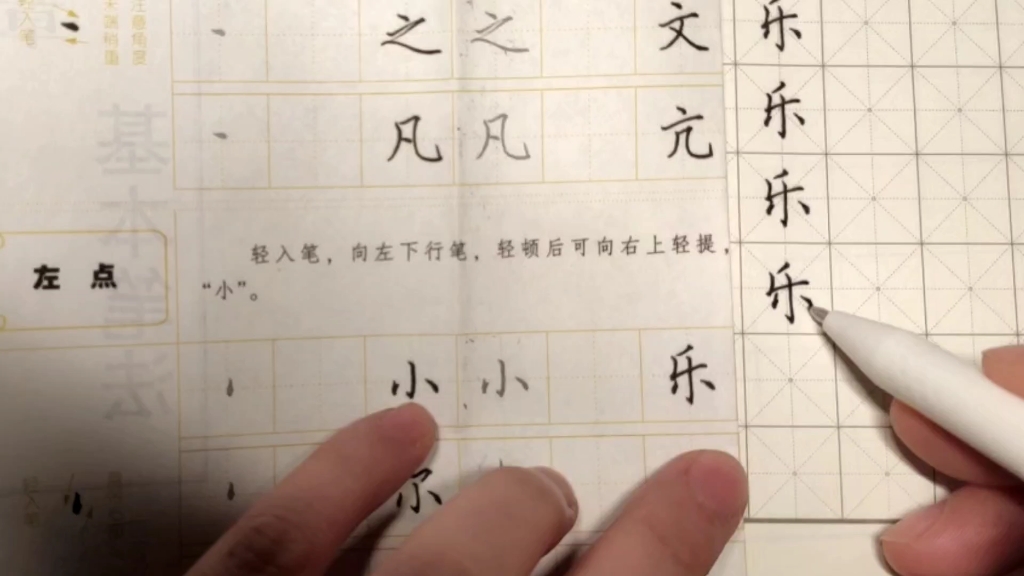 之 之 文 乐
凡 凡 亢 乐
乐
左点
轻入笔，向左下行笔，轻顿后可向右上轻提，
“小”。
乐
小 小 乐
尔
基本笔法